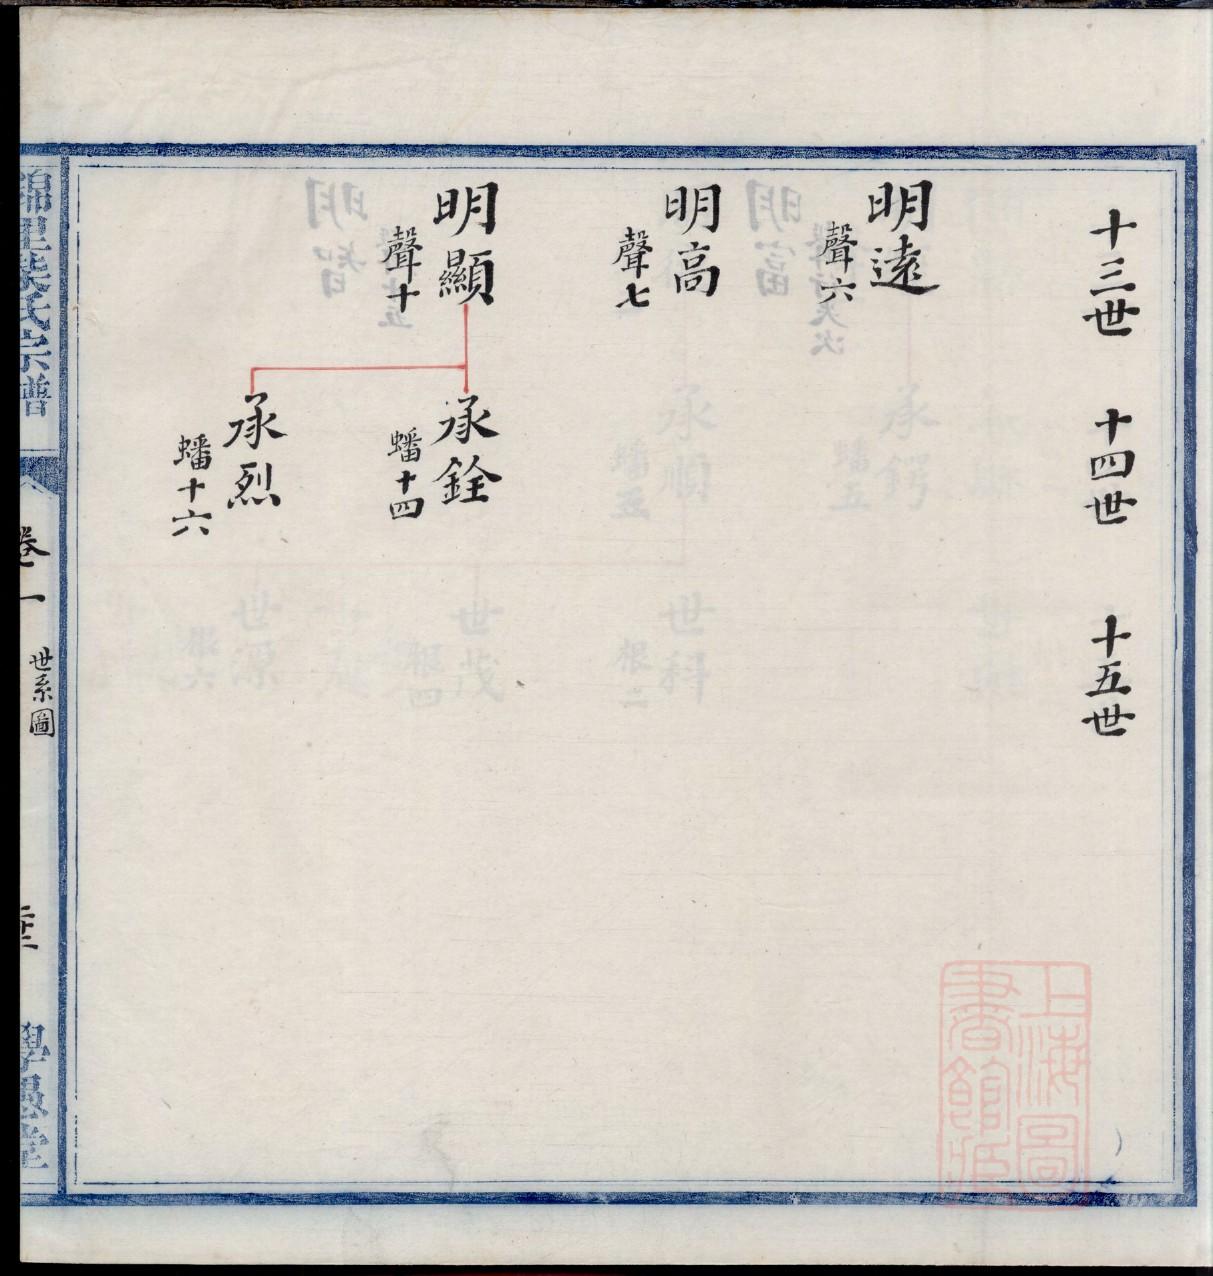 十三世
十四世
十五世
明遠
聲六
明高
聲七
明顯
聲十
承銓
蟠十四
承烈
蟠十六
宗譜
卷一
世系圖
學愚堂
上海圖
書館藏